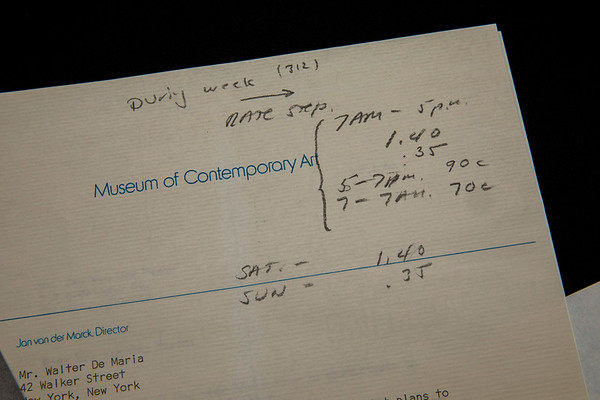 During week (312)
RATE Step.
7 AM - 5 p.m.
1.40
.35
5 - 7 p.m. 90c
7 - 7 AM. 70c
Museum of Contemporary Art
SAT. - 1.40
SUN - .35
Jan van der Marck, Director
Mr. Walter De Maria
42 Walker Street
New York, New York
plans to